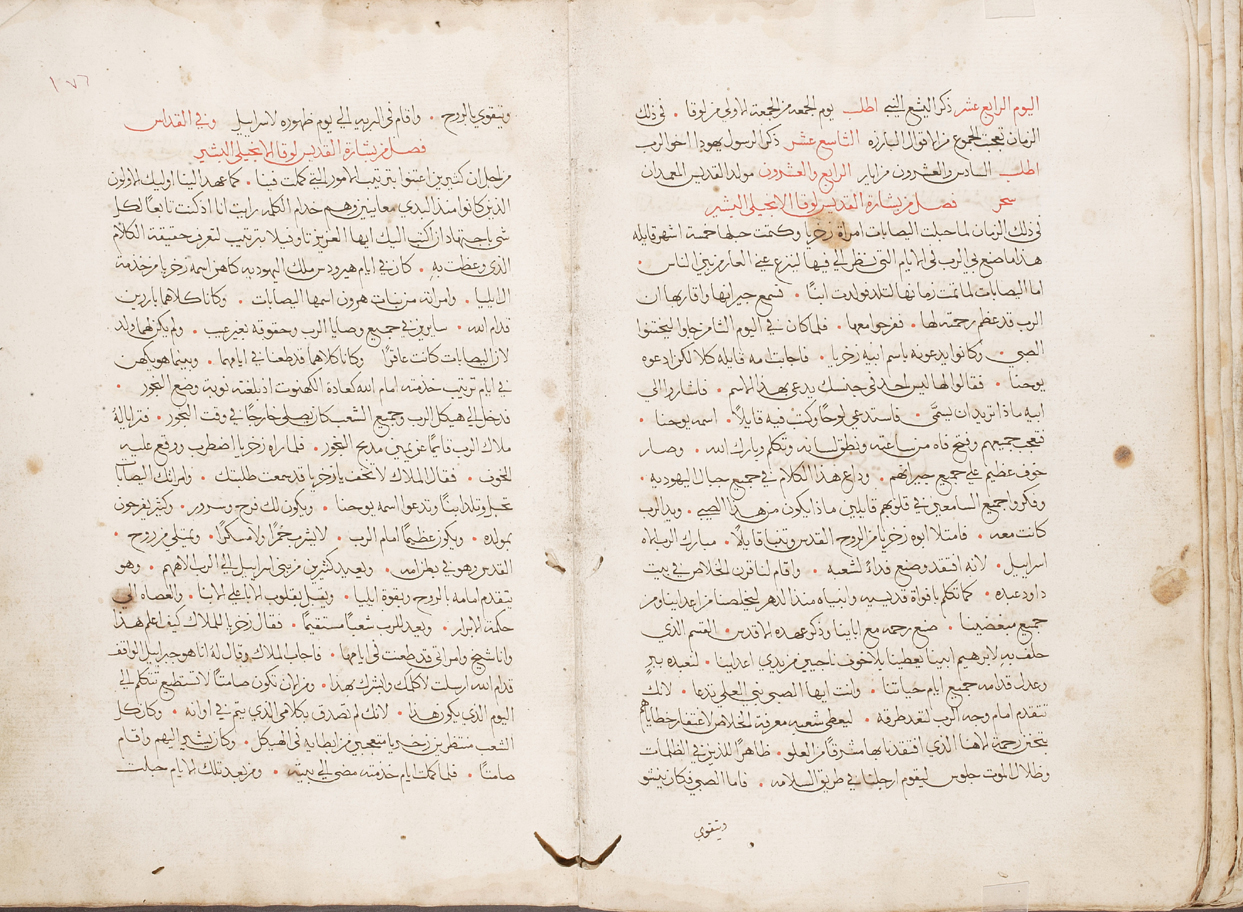 اليوم الرابع عشر ذكر اليشع النبي اطلب يوم الجمعه من الجمعة الاولي من لوقا • في ذلك
الزمان تعجبت الجموع من الاقوال البارزه التاسع عشر ذكر الرسول يهودا اخو الرب
اطلب السادس والعشرون من ايار الرابع والعشرون مولد القديس المعمدان
سحر فصل من بشارة القديس لوقا الانجيلي البشير
في ذلك الزمان لما حبلت اليصابات امراة زخريا وكتمت حبلها خمسة اشهر قايله
هذا ما صنع بي الرب في الايام التي نظر الي فيها لينزع عني العار من بين الناس •
اما اليصابات لما تمت زمانها لتلد فولدت ابنًا • فسمع جيرانها واقاربها ان
الرب قد عظم رحمته لها • ففرحوا معها • فلما كان في اليوم الثامن جاوا ليختنوا
الصبي • وكانوا يدعونه باسم ابيه زخريا • فاجابت امه قايله كلا لكن ادعوه
يوحنا • فقالوا لها ليس احد في جنسك يدعي بهذا الاسم • فاشاروا الي
ابيه ماذا تريد ان يسمَّي • فاستدعي لوحًا وكتب فيه قايلاً • اسمه يوحنا •
فتعجب جميعهم وفتح فاه من ساعته ونطق لسانه وتكلم وبارك الله • وصار
خوف عظيم علي جميع جيرانهم • وذاع هذا الكلام في جميع جبال اليهوديه •
وفكروا جميع السامعين في قلوبهم قايلين ماذا يكون من هذا الصبي • ويد الرب
كانت معه • فامتلا ابوه زخريا من الروح القدس وتنبا قايلاً • مبارك الرب اله
اسراييل • لانه افتقد وصنع فداءً لشعبه • واقام لنا قرن الخلاص في بيت
داود عبده • كما تكلم بافواة قديسيه وانبياه منذ الدهر ليخلصنا من اعداينا ومن
جميع مبغضينا • صنع رحمه مع اباينا وذكر عهده الاقدس • القسم الذي
حلف به لابرهيم ابينا يعطينا بلا خوف ناجيين من يدي اعداينا • لنعبده ببر
وعدل قدامه جميع ايام حياتنا • وانت ايها الصبي نبي العلي تدعا • لانك
تتقدم امام وجه الرب لتعد طرقه • ليعطي شعبه معرفة الخلاص لاغتفار خطاياهم
بتحنن رحمة الاهنا الذي افتقدنا بها مشرقًا من العلو • ظاهرًا للذين في الظلمات
وظلال الموت جلوس ليقوم ارجلنا في طريق السلامه • فاما الصبي فكان ينشو
ويتقوي
١٧٦
ويتقوي بالروح • واقام في البريه الي يوم ظهوره لاسراييل وفي القداس
فصل من بشارة القديس لوقا الانجيلي البشير
من اجل ان كثيرين اعتنوا بترتيب الامور التي كملت فينا • كما عهد الينا اوليك الاولون
الذين كانوا منذ البدي معاينين وهم خدام الكلمه رايت انا اذ كنت تابعًا لكل
شي باجتهاد ان اكتب اليك ايها العزيز تاوفيلا بترتيب لتعرف حقيقة الكلام
الذي وعظت به • كان في ايام هيرودس ملك اليهوديه كاهن اسمه زخريا من خدمة
الابليا • وامراته من بنات هرون اسمها اليصابات • وكانا كلاهما بارين
قدام الله • سايرين في جميع وصايا الرب وحقوقه بغير عيب • ولم يكن لهما ولد
لان اليصابات كانت عاقرًا وكانا كلاهما قد طعنا في ايامهما • وبينما هو يكهن
في ايام ترتيب خدمته امام الله كعادة الكهنوت اذ بلغته نوبة وضع البخور •
فدخل الي هيكل الرب وجميع الشعب كان يصلي خارجًا في وقت البخور • فترايا له
ملاك الرب قايمًا عن يمين مذبح البخور • فلما راه زخريا اضطرب ووقع عليه
الخوف • فقال له الملاك لا تخف يا زخريا قد سمعت طلبتك • وامراتك اليصابات
تحبل وتلد ابنًا وتدعوا اسمه يوحنا • ويكون لك فرح وسرور • وكثير يفرحون
بمولده • ويكون عظيمًا امام الرب • لا يشرب خمرًا ولا مسكرًا • ويمتلي من روح •
القدس وهو في بطن امه • ويعيد كثيرين من بني اسراييل الي الرب الاههم • وهو
يتقدم امامه بالروح وبقوة ايليا • ويقبل بقلوب الابا علي الابنا • والعصاه الي
حكمة الابرار • ويعد للرب شعبًا مستقيمًا • فقال زخريا للملاك كيف اعلم هذا
وانا شيخ وامراتي قد طعنت في ايامها • فاجاب الملاك وقال له انا هو جبراييل الواقف
قدام الله ارسلت لاكلمك وابشرك بهذا • ومن الان تكون صامتًا لا تستطيع تتكلم الي
اليوم الذي يكون هذا • لانك لم تصدق بكلامي الذي يتم في اوانه • وكان كل
الشعب منتظرين زخريا متعجبين من ابطايه في الهيكل • وكان يشير اليهم واقام
صامتًا • فلما كملت ايام خدمته مضي الي بيته • ومن بعد تلك الايام حبلت